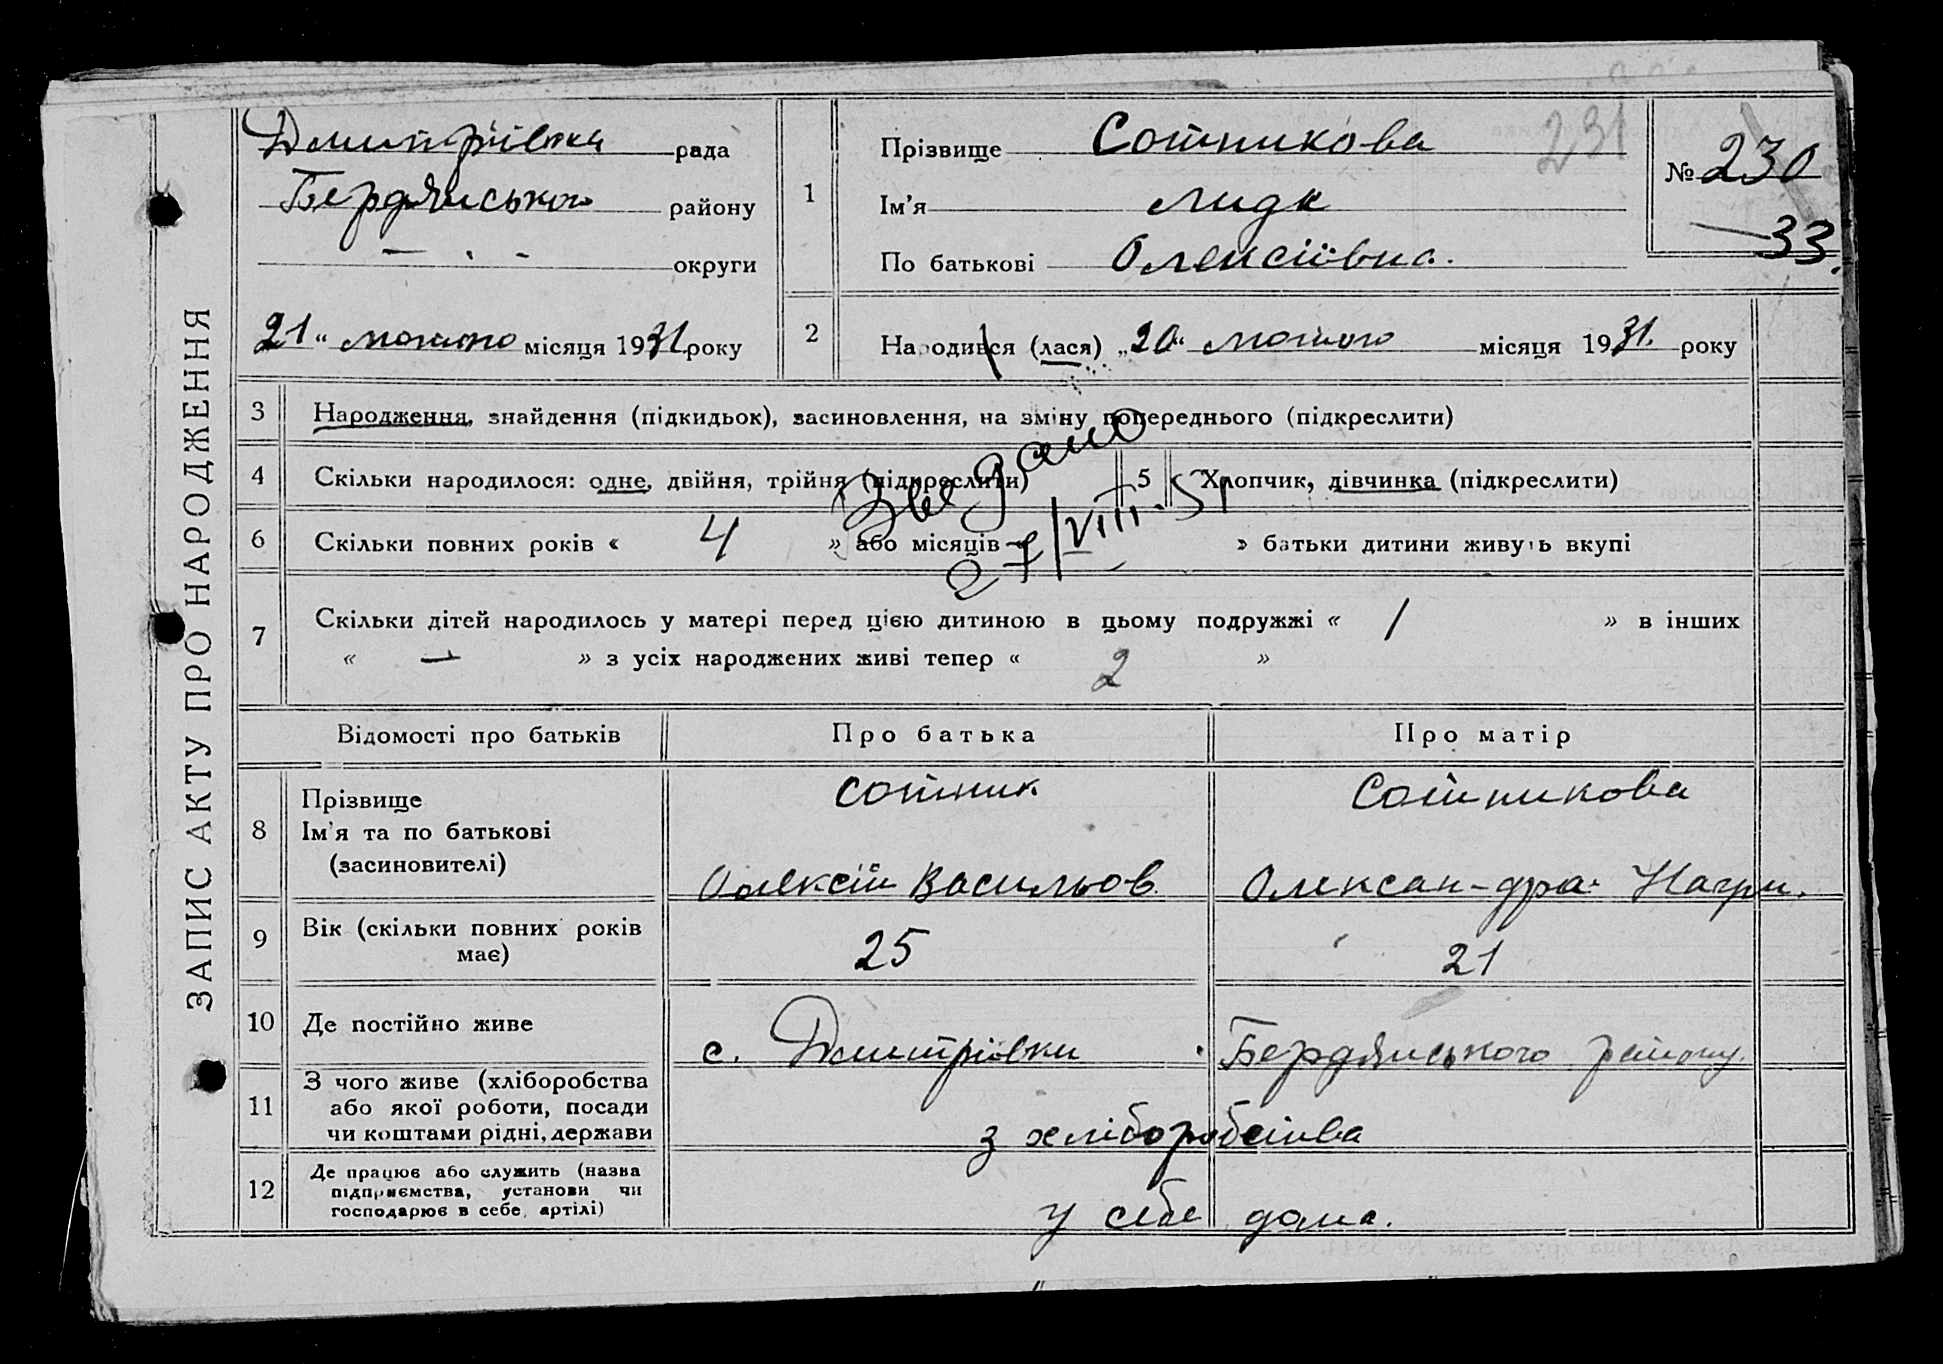 ЗАПИС АКТУ ПРО НАРОДЖЕННЯ
Дмитрівка рада
Бердянського району
— . - округи
21 " лютого місяця 1931 року
1
Прізвище Сотникова
Ім'я Лида
По батькові Олексіївна.
231
№ 230
33.
2
Народився (лася) „20" лютого місяця 1931. року
3 Народження, знайдення (підкидьок), засиновлення, на зміну попереднього (підкреслити)
4 Скільки народилося: одне, двійня, трійня (підкреслити) 5 Хлопчик, дівчинка (підкреслити)
27/VIII-51
6 Скільки повних років « 4 » або місяців — » батьки дитини живуть вкупі
7 Скільки дітей народилось у матері перед цією дитиною в цьому подружжі « 1 » в інших
« — » з усіх народжених живі тепер « 2 »
Відомості про батьків Про батька Про матір
8 Прізвище Сотник Сотникова
Ім'я та по батькові
(засиновителі) Олексій Васильов Олексан-дра
9 Вік (скільки повних років має) 25 21
10 Де постійно живе с. Дмитрівки Бердянського району.
11 З чого живе (хліборобства
або якої роботи, посади
чи коштами рідні, держави з хліборобства
12 Де працює або служить (назва
підприємства, установи чи
господарює в себе, артілі) у себе дома.